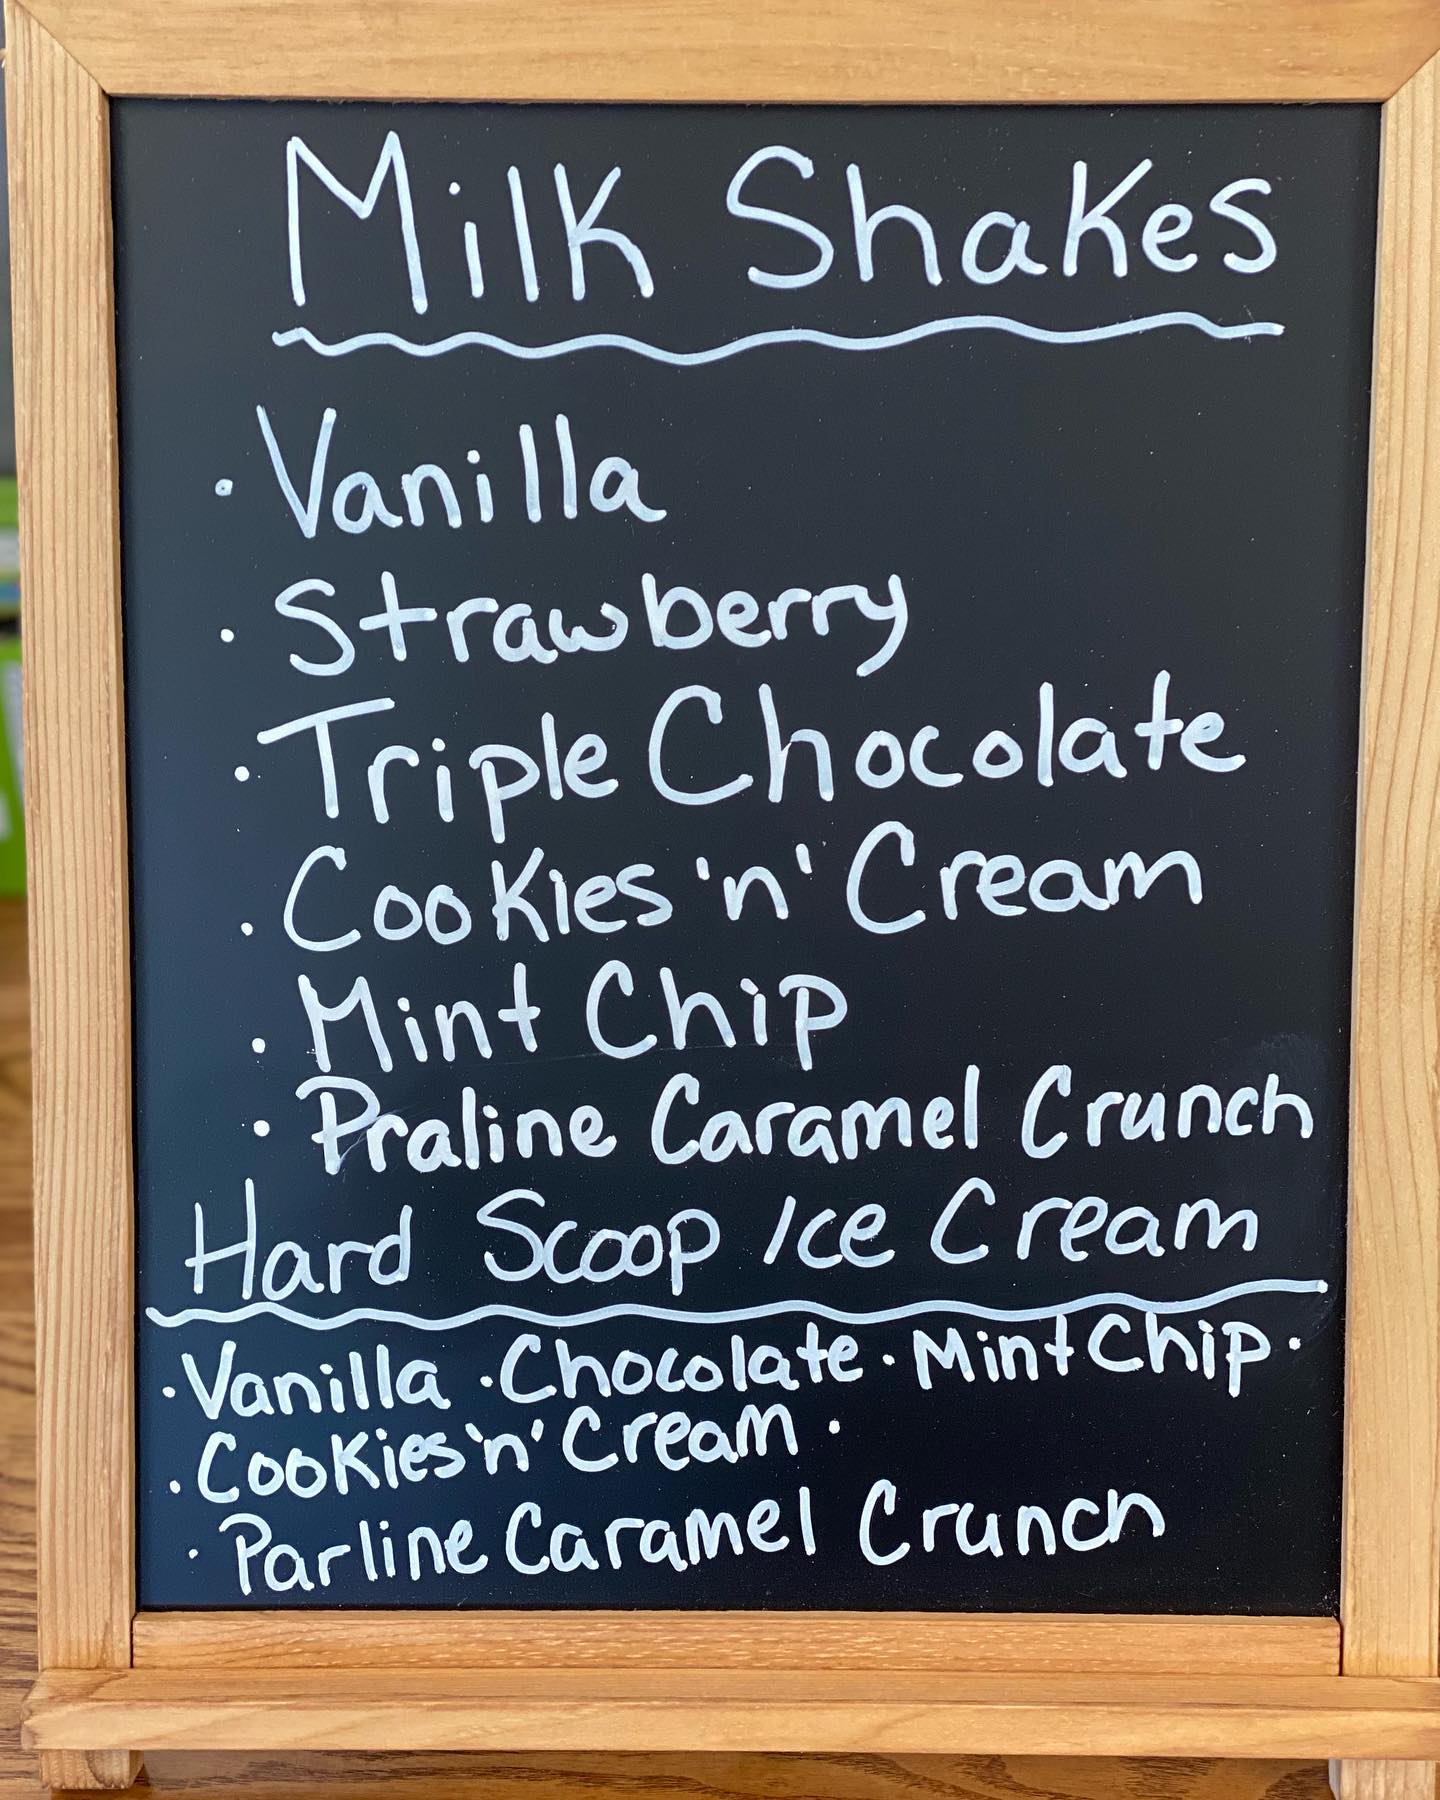 Milk Shakes
• Vanilla
• Strawberry
• Triple Chocolate
• Cookies 'n' Cream
• Mint Chip
• Praline Caramel Crunch
Hard Scoop Ice Cream
• Vanilla • Chocolate • Mint Chip •
• Cookies 'n' Cream •
• Parline Caramel Crunch